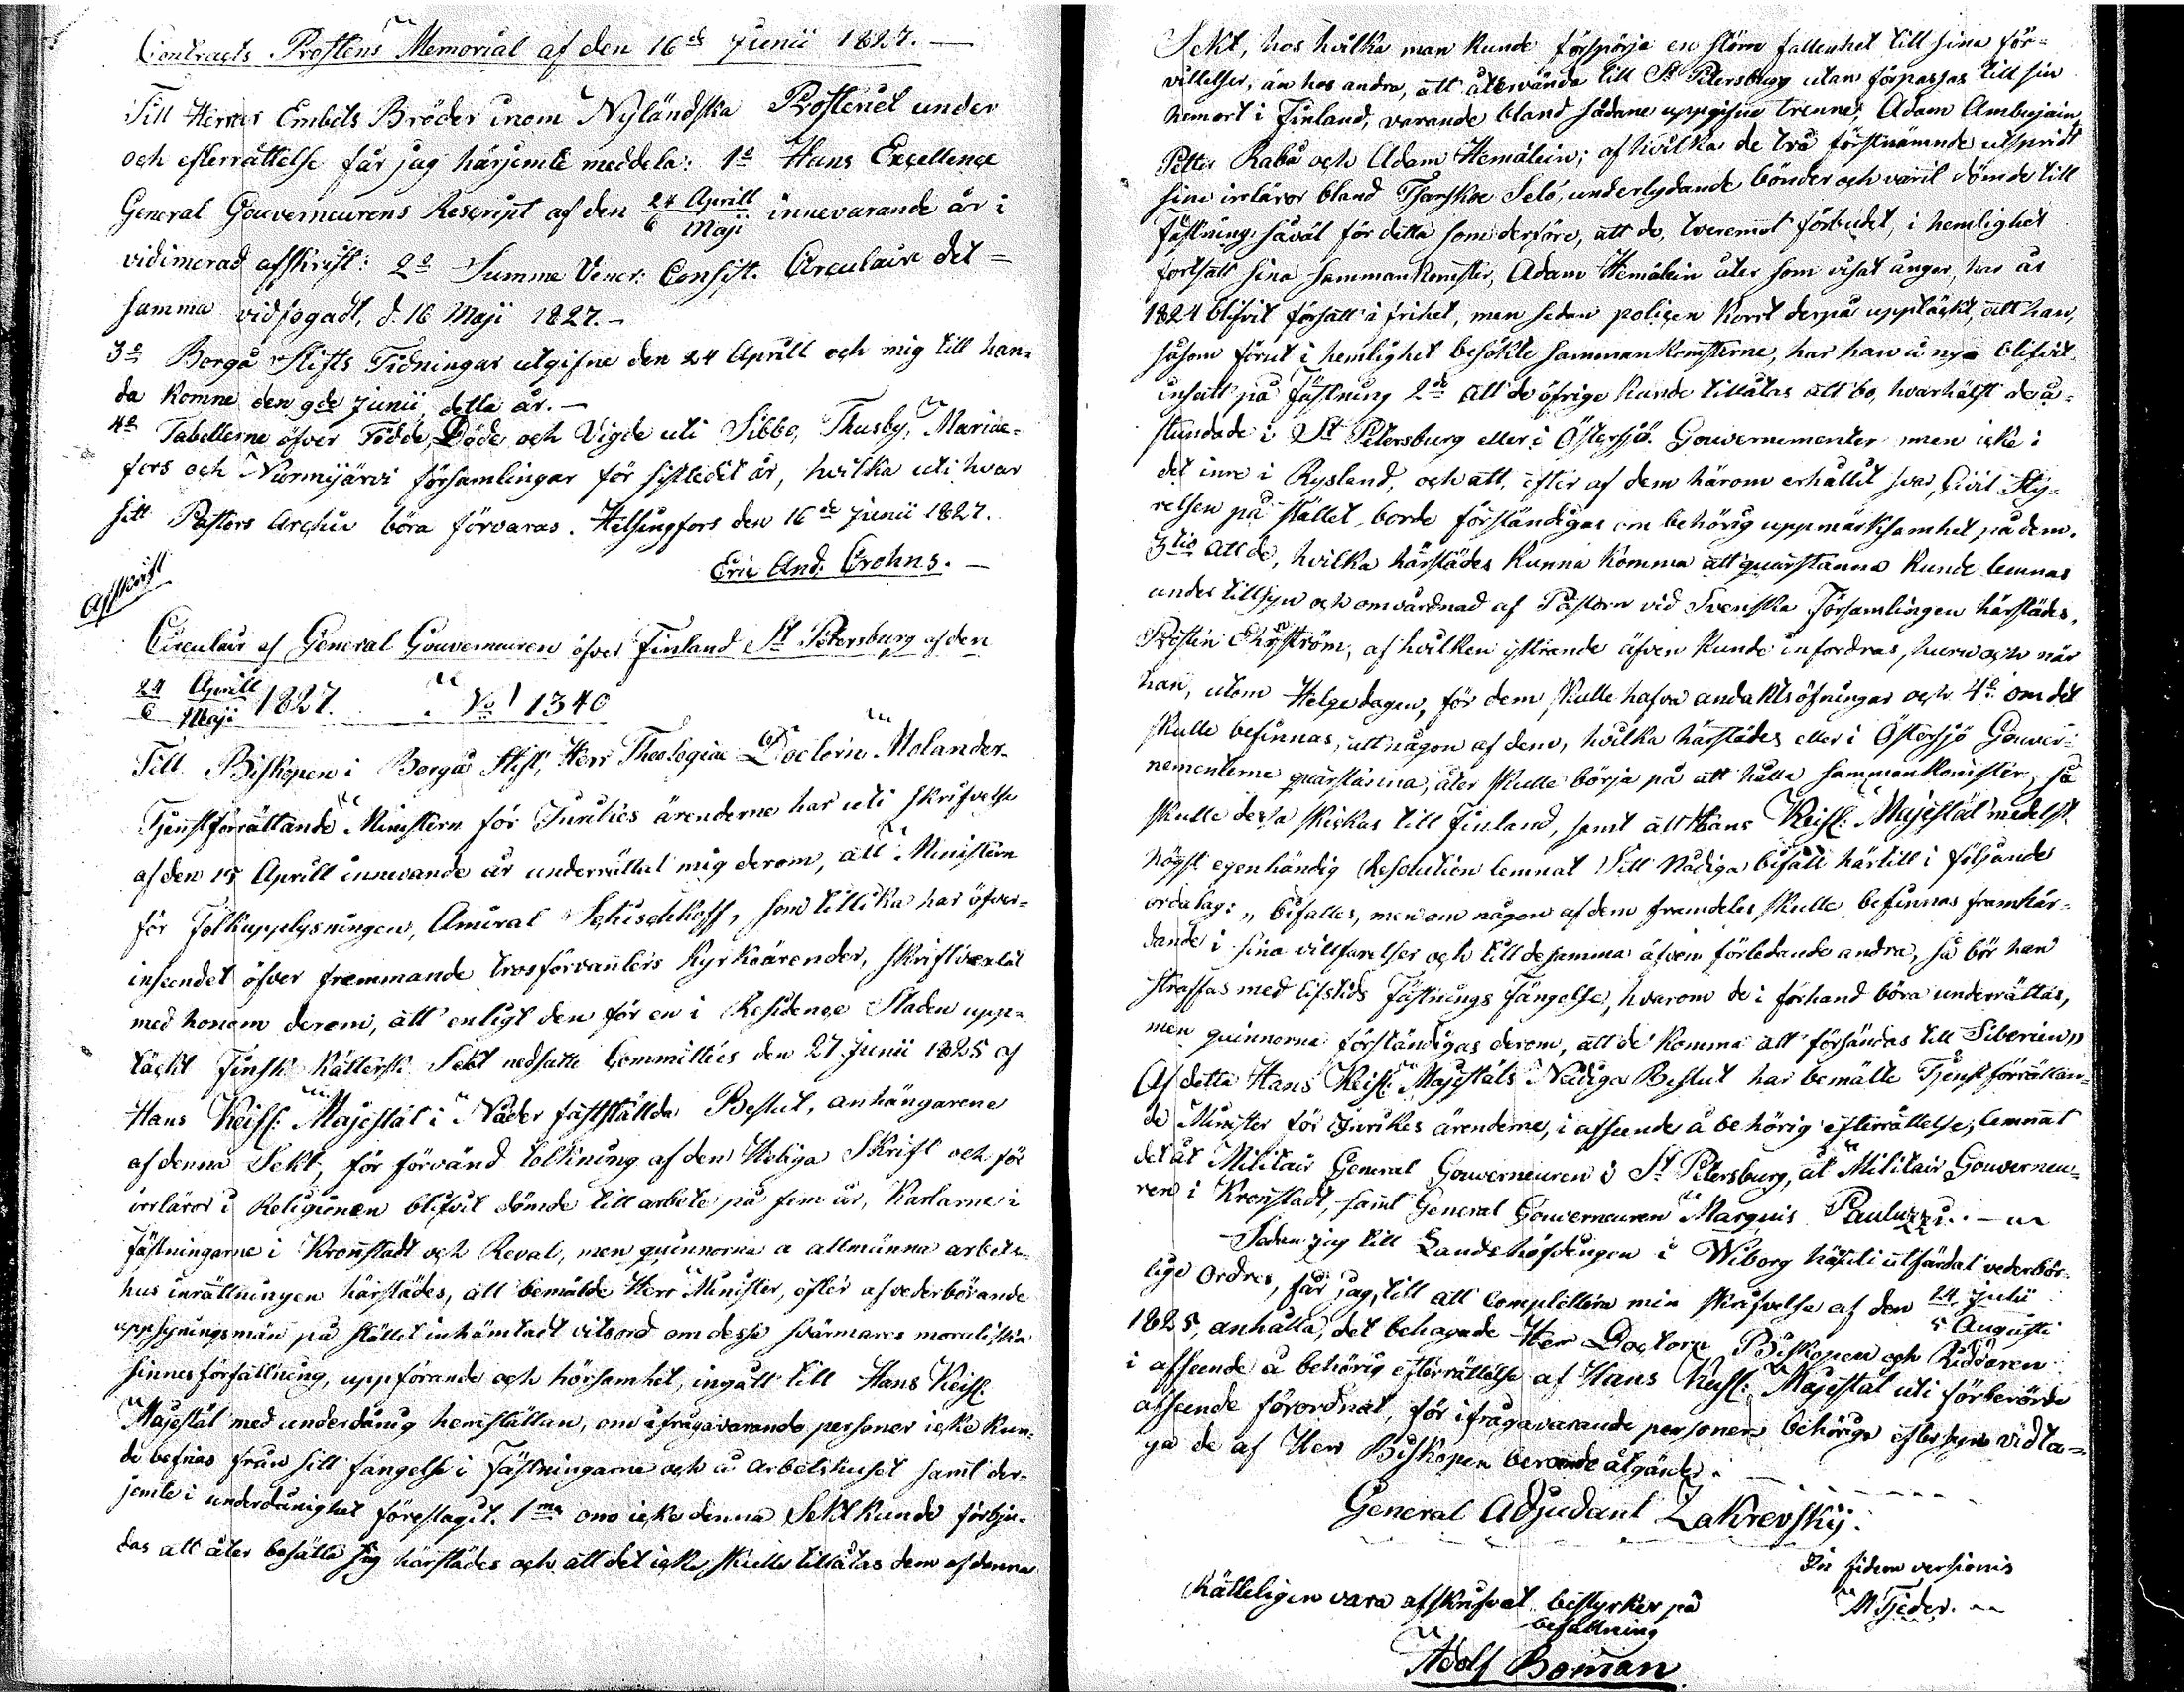 Contracts Prostens Memorial af den 16de Junii 1827. —
Till Herrar Embets Bröder inom Nyländska Prosteriet under
och efterrättelse får jag härjemte meddela: 1o Hans Excellence
General Gouverneurens Rescript af den 24 Aprill / 6 Maji innevarande år i
vidimerad afskrift: 2o Summe Vener: Consist. Circulair det=
samma vidfogadt, d. 16 Maji 1827. —
3o Borgå Stifts Tidningar utgifne den 24 Aprill och mig till han=
da komne den 9de Junii detta år. —
4o Tabellerne öfver Födde, Döde och Vigde uti Sibbo, Thusby, Mariæ=
fors och Nurmijärvi församlingar för sistledit år, hvilka uti hvar
sitt Pastors Archiv böra förvaras. Helsingfors den 16de Junii 1827.
Eric And. Crohns. —
Afskrift
Circulair af General Gouverneuren öfver Finland St Petersburg af den
24 Aprill / 6 Maji 1827. No 1340
Till Biskopen i Borgå Stift, Herr Theologiæ Doctorn Molander.
Tjenstförrättande Ministern för Inrikes ärenderne har uti skrifvelse
af den 15 Aprill innevande år underrättat mig derom, att Ministern
för Folkupplysningen, Amiral Schischkoff, som tillika har öfver=
inseendet öfver fremmande trosförvanters Kyrkoärender, skriftvexlat
med honom derom, att enligt den för en i Residence Staden upp=
täckt Finsk Kättersk Sekt nedsatte Committées den 27 Junii 1825 af
Hans Keisl: Majestät i Nåder fastställda Beslut, anhängarene
af denna Sekt, för förvänd tolkning af den Heliga Skrift och för
irrläror i Religionen blifvit dömde till arbete på fem år, Karlarne i
Fästningarne i Kronstadt och Reval, men quinnorna a allmänna arbets=
hus inrättningen härstädes, att bemälde Herr Minister, efter af vederbörande
uppsyningsmän på stället inhämtadt vitsord om dessa svärmares moraliska
sinnesförfattning, uppförande och hörsamhet, ingått till Hans Keisl:
Majestät med underdånig hemställan, om ifrågavarande personer icke kun=
de befrias från sitt fängelse i Fästningarne och å arbetshuset samt der=
jemte i underdånighet föreslagit. 1mo om icke denna Sekt kunde förbju=
das att åter besätta sig härstädes och att det icke skulle tillåtas dem af denna
Sekt, hos hvilka man kunde förspörja en större fallenhet till sina för=
villelser, än hos andra, att återvända till St Petersburg utan förpassas till sin
hemort i Finland, varande bland sådane uppgifne trenne, Adam Ambrjain,
Petter Rabå och Adam Hemäläin; af hvilka de två förstnämnde utspridt
sina irrläror bland Tsarskoe Selo, underlydande bönder och varit dömde till
Fästning, såväl för detta som derföre, att de, tveremot förbudet, i hemlighet
fortsatt sina sammankomster, Adam Hemäläin åter som visat ånger, har år
1824 blifvit försatt i frihet, men sedan policen kort derpå upptäckt, att han,
såsom förut i hemlighet besökte sammankomsterne, har han å nya blifvit
insatt på Fästning 2do att de öfrige kunde tillåtas att bo, hvarhälst de å=
stundade i St Petersburg eller i Östersjö Gouvernementer men icke i
det inre i Ryssland, och att, efter af dem härom erhållit svar, Civil Sty=
relsen på stället borde förständigas om behörig uppmärksamhet på dem.
3tio att de, hvilka härstädes kunna komma att quarstanna kunde lemnas
under tillsyn och omvårdnad af Pastorn vid Svenska Församlingen härstädes,
Prosten Ehrström, af hvilken yttrande äfven kunde infordras, huru och när
han, utom Helgedagen, för dem skulle hafva andaktsöfningar och 4o om det
skulle befinnas, att någon af dem, hvilka härstädes eller i Östersjö Gouver=
nementerne quarstanna, åter skulle börja på att hålla sammankomster, så
skulle dessa skickas till Finland, samt att Hans Keisl: Majestät medelst
högst egenhändig Resolution lemnat Sitt Nådiga bifall härtill i följande
ordalag: „bifalles, men om någon af dem framdeles skulle befinnas framhär=
dande i sina villfarelser och till desamma äfven förledande andra, så bör han
straffas med lifstids Fästnings Fängelse, hvarom de i förhand böra underrättas,
men quinnorna förständigas derom, att de komma att försändas till Siberien„
Af detta Hans Keisl: Majestäts Nådiga Beslut har bemälte Tjenstförrättan=
de Minister för Inrikes ärenderne, i afseende å behörig efterrättelse, lemnat
del åt Militair General Gouverneuren i St Petersburg, åt Militair Gouverneu=
ren i Kronstadt, samt General Gouverneuren Marquis Paulucci. —
Sedan jag till Landshöfdingen i Wiborg häruti utfärdat vederbör=
lige Ordres, får jag, till att complettera min skrifvelse af den 24 Julii / 5 Augusti
1825, anhålla, det behagade Herr Doctorn Biskopen och Riddaren
i afseende å behörig efterrättelse af Hans Keisl: Majestät uti förberörde
afseende förordnat, för ifrågavarande personers behöriga eftersyn vidta=
ga de af Herr Biskopen beroende åtgärder.
General Adjudant Zakrevskij.
In fidem versionis
M Tjeder.
Rätteligen vara afskrifvat bestyrker på
befallning
Adolf Boman